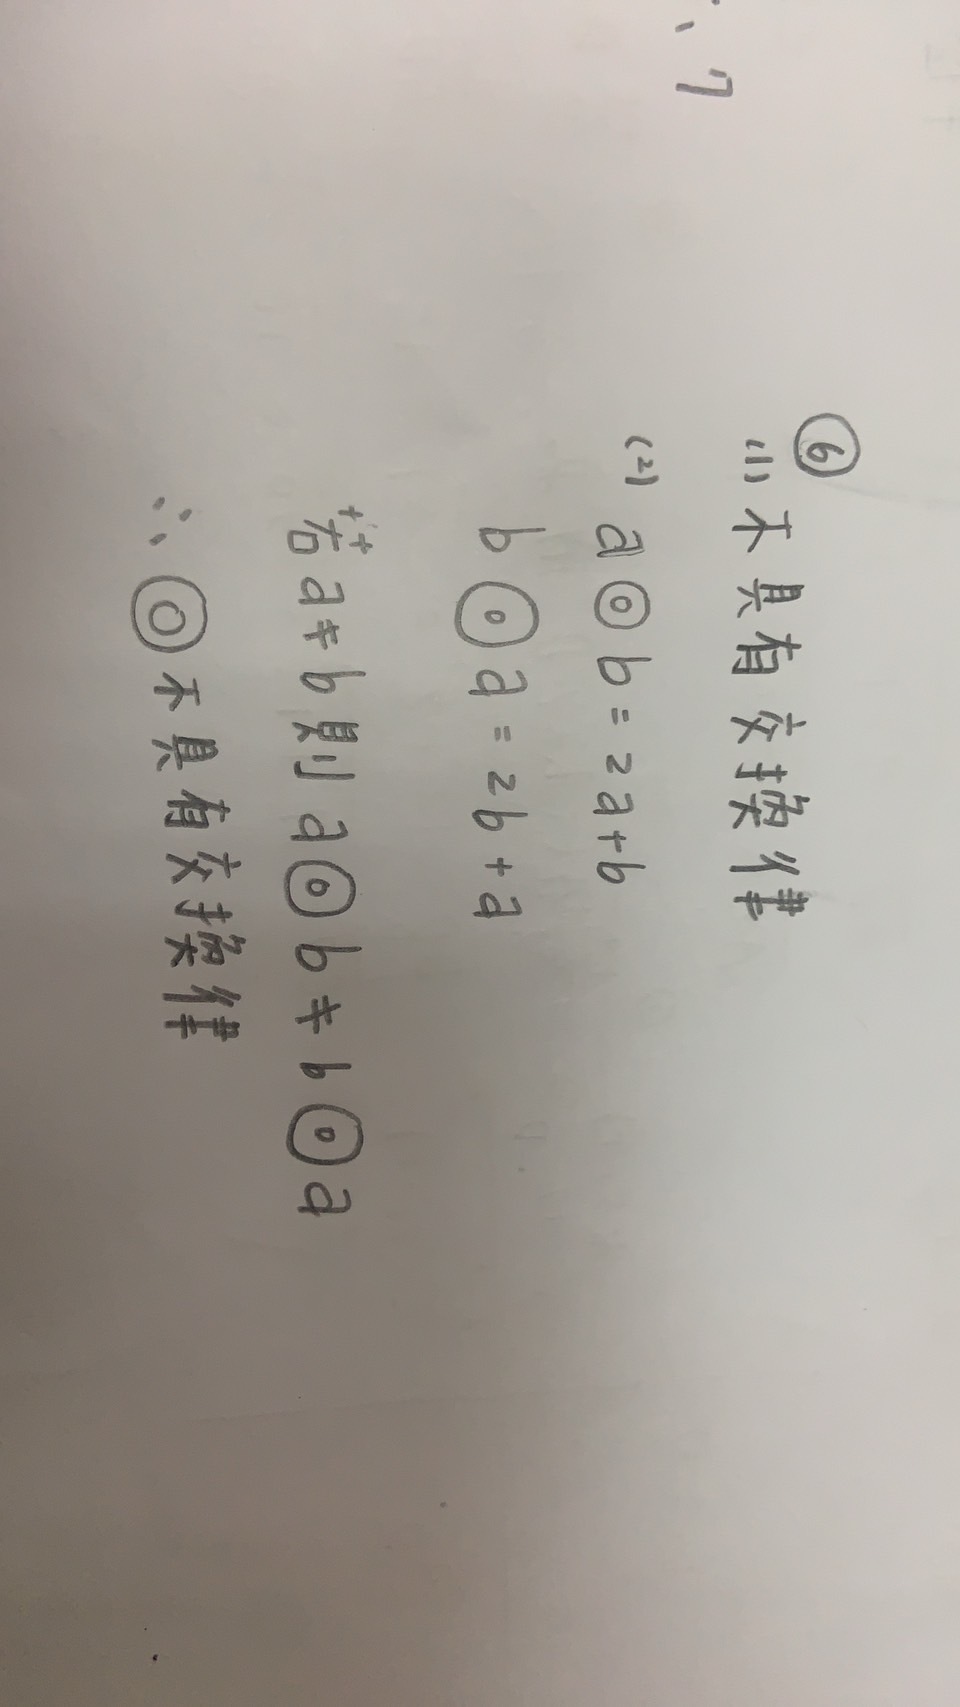 ∴ 7
⑥
(1) 不具有交換律
(2) a ◎ b = 2a + b
b ◎ a = 2b + a
若 a ≠ b 則 a ◎ b ≠ b ◎ a
∴ ◎ 不具有交換律